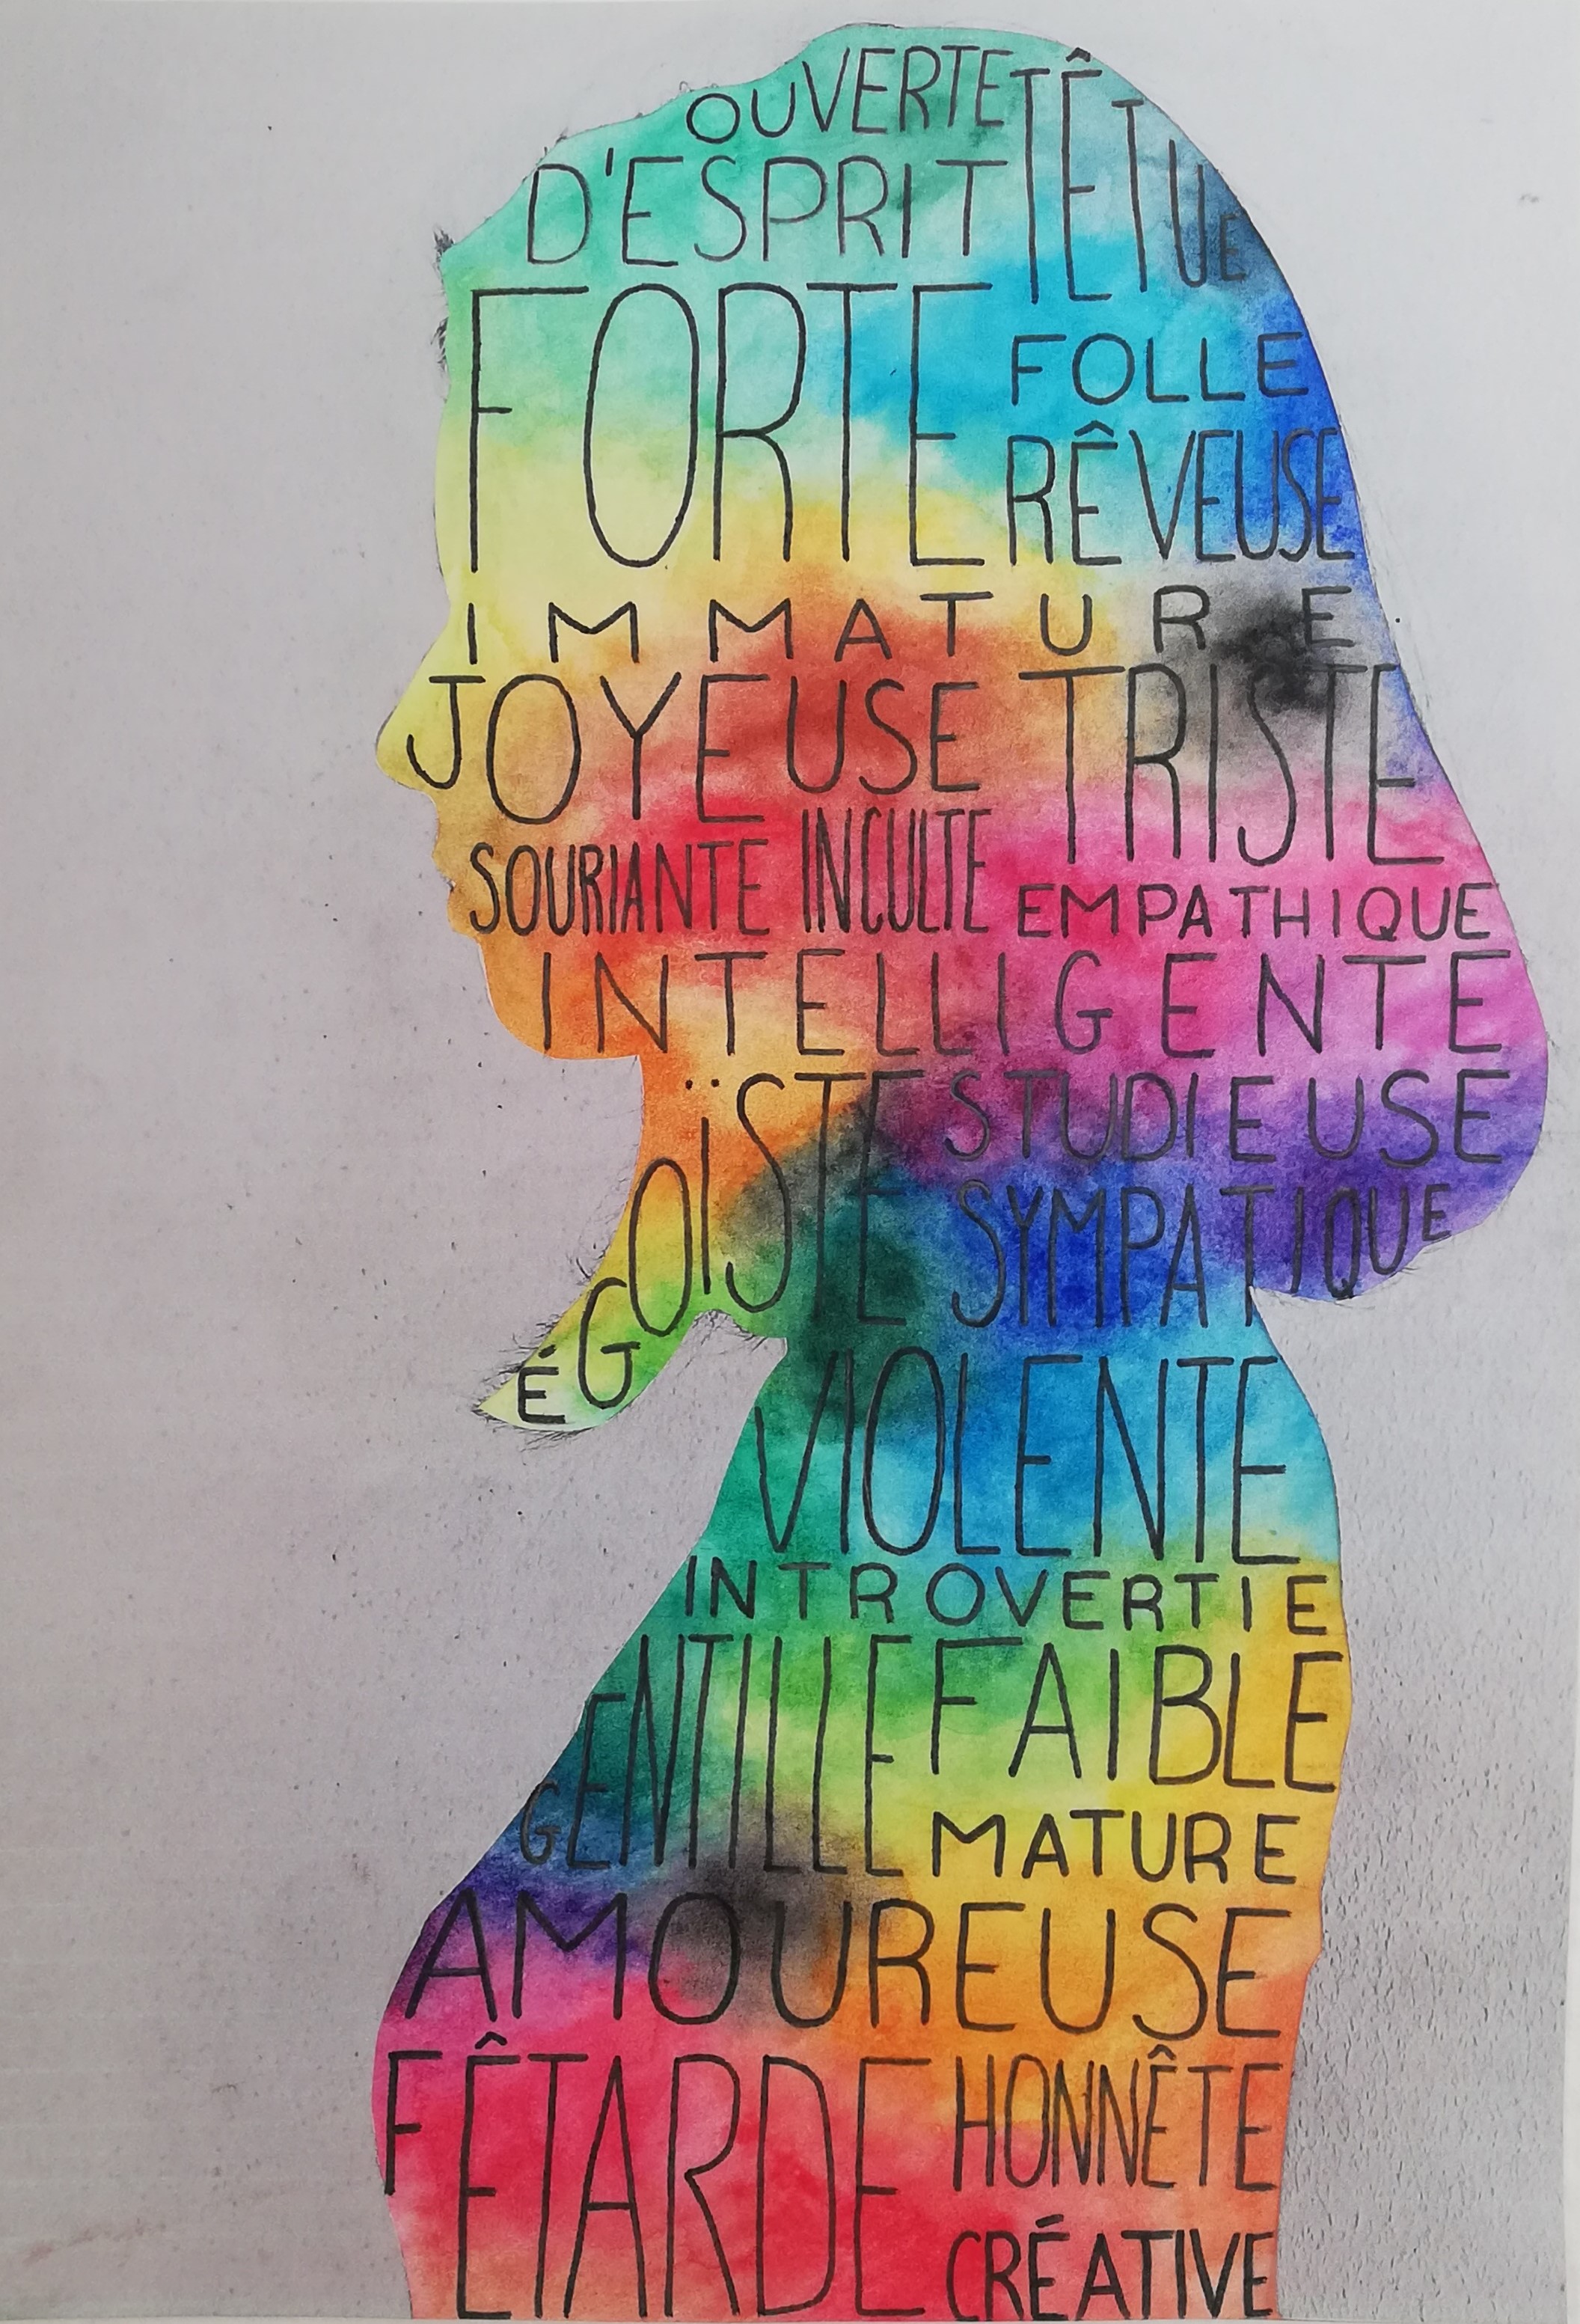 OUVERTE
D'ESPRIT
TÊTUE
FORTE
FOLLE
RÊVEUSE
IMMATURE
JOYEUSE
TRISTE
SOURIANTE
INCULTE
EMPATHIQUE
INTELLIGENTE
ÉGOÏSTE
STUDIEUSE
SYMPATIQUE
VIOLENTE
INTROVERTIE
GENTILLE
FAIBLE
MATURE
AMOUREUSE
FÊTARDE
HONNÊTE
CRÉATIVE